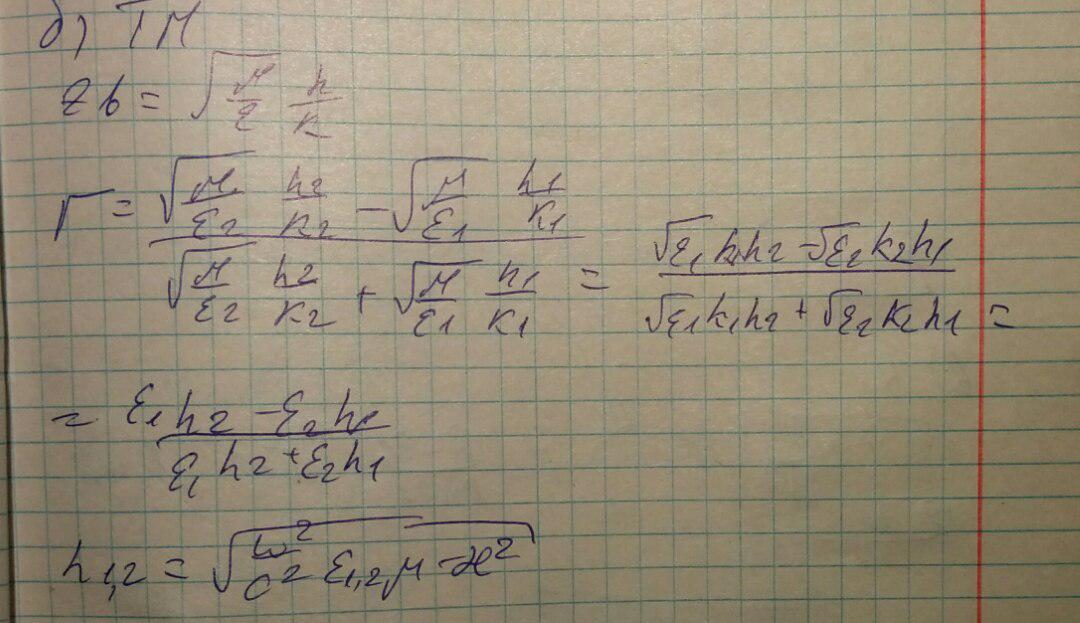 б) TM
Zb = √(μ/ε) h/k
Γ = (√(μ/ε2) h2/k2 − √(μ/ε1) h1/k1) / (√(μ/ε2) h2/k2 + √(μ/ε1) h1/k1) = (√ε1 k1h2 − √ε2 k2h1) / (√ε1 k1h2 + √ε2 k2h1) =
= (ε1h2 − ε2h1) / (ε1h2 + ε2h1)
h1,2 = √(ω²/c² ε1,2 μ − ϰ²)